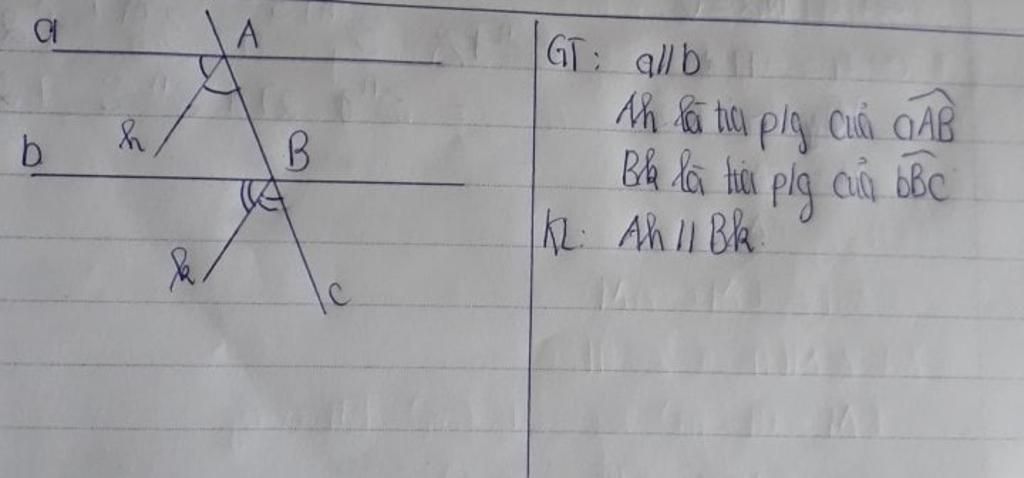 a
A
h
b
B
k
C
GT: a//b
Ah là tia p/g của aAB
Bk là tia p/g của bBC
KL: Ah // Bk.